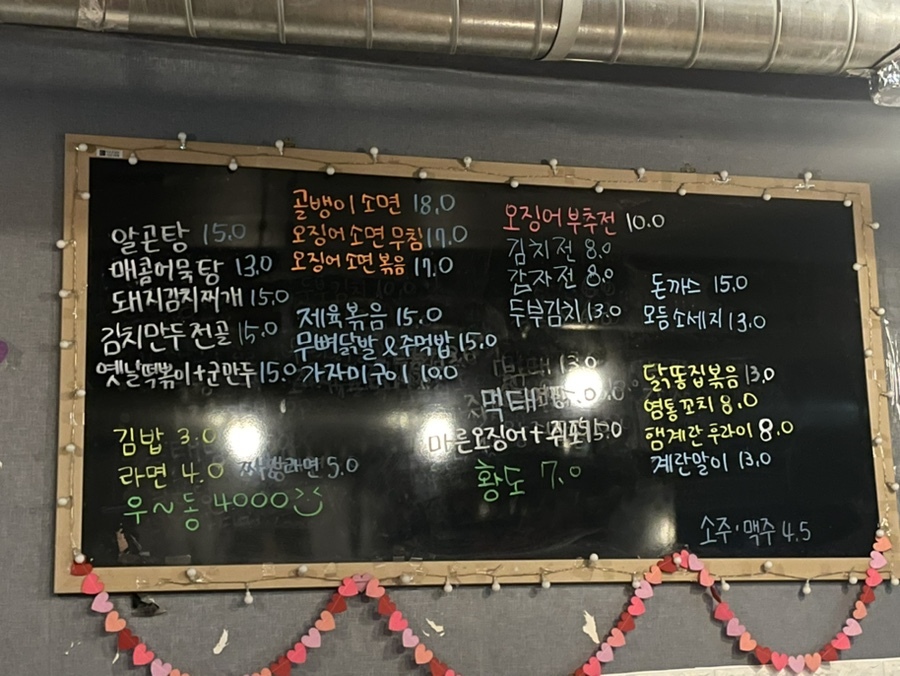 알곤탕 15.0
매콤어묵탕 13.0
돼지김치찌개 15.0
김치만두전골 15.0
옛날떡볶이+군만두 15.0
김밥 3.0
라면 4.0 짜장라면 5.0
우~동 4000
골뱅이소면 18.0
오징어소면무침 17.0
오징어소면볶음 17.0
제육볶음 15.0
무뼈닭발&주먹밥 15.0
가자미구이 10.0
오징어부추전 10.0
김치전 8.0
감자전 8.0
두부김치 13.0
먹태
마른오징어+쥐포 15.0
황도 7.0
돈까스 15.0
모듬소세지 13.0
닭똥집볶음 13.0
염통꼬치 8.0
햄계란후라이 8.0
계란말이 13.0
소주·맥주 4.5